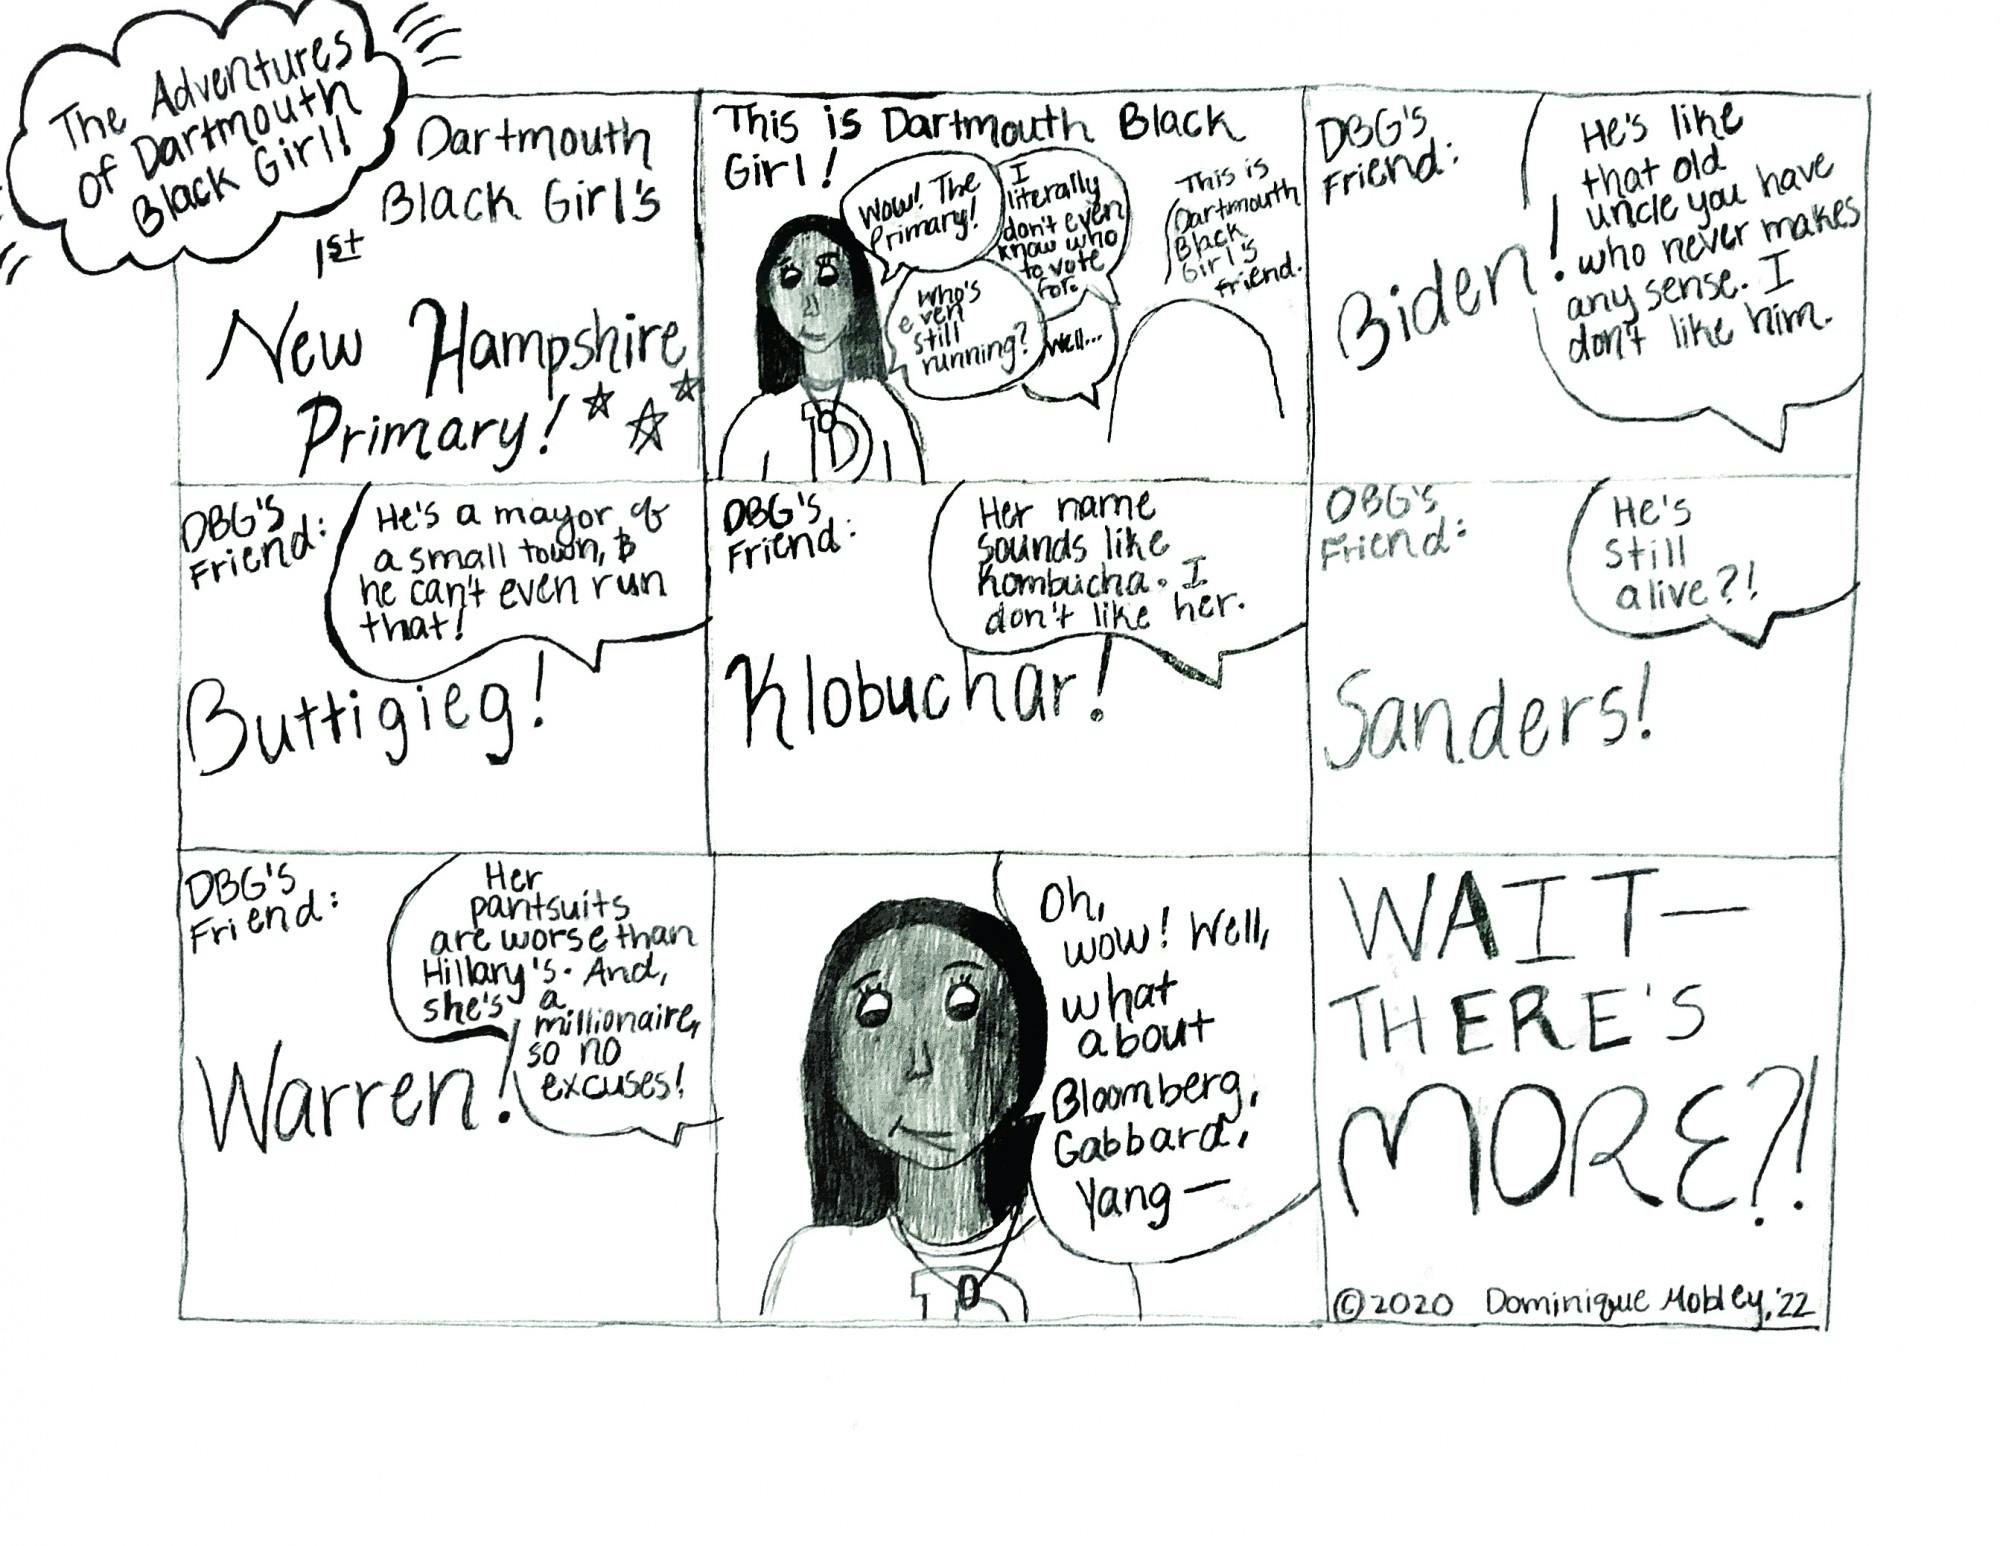 The Adventures
of Dartmouth
Black Girl!
Dartmouth
Black Girl's
1st
New Hampshire
Primary!
This is Dartmouth Black
Girl!
Wow! The
Primary!
I
literally
don't even
know who
to vote
for.
Who's
even
still
running?
Well...
This is
Dartmouth
Black
Girl's
friend.
D
DBG's
Friend:
He's like
that old
uncle you have
who never makes
any sense. I
don't like him.
Biden!
DBG's
Friend:
He's a mayor of
a small town, &
he can't even run
that!
Buttigieg!
DBG's
Friend:
Her name
sounds like
Kombucha. I
don't like her.
Klobuchar!
DBG's
Friend:
He's
still
alive?!
Sanders!
DBG's
Friend:
Her
pantsuits
are worse than
Hillary's. And,
she's a
millionaire,
so no
excuses!
Warren!
Oh,
wow! Well,
what
about
Bloomberg,
Gabbard,
Yang —
D
WAIT—
THERE'S
MORE?!
©2020 Dominique Mobley, '22